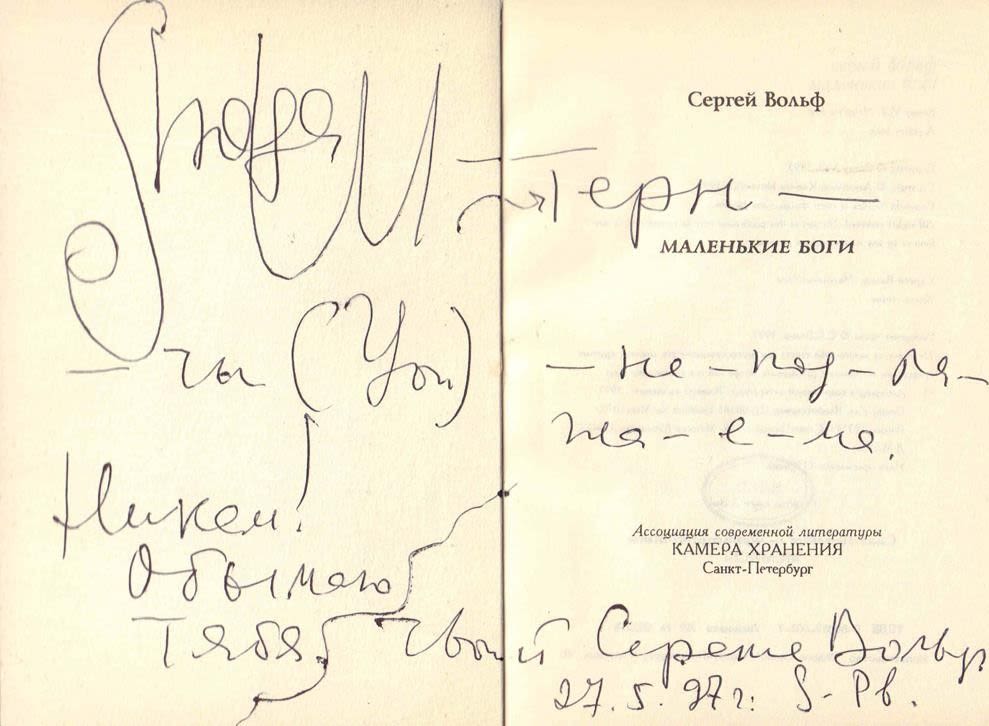 Люда Ш — терн —
— ты (You) — не – под – ра –
жа – е – ма.
Никем!
Обымаю
Тябя, твой Сережа Вольф.
27.5.97 г. S-Pb.
Сергей Вольф
МАЛЕНЬКИЕ БОГИ
Ассоциация современной литературы
КАМЕРА ХРАНЕНИЯ
Санкт-Петербург